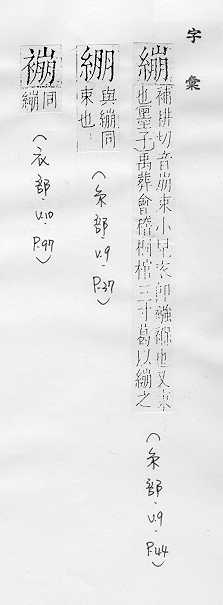 字彙
繃
補耕切音崩束小兒衣即強褓也又束
也墨子禹葬會稽桐棺三寸葛以繃之
(糸部.V.9.P.44)
綳
與繃同
束也
(糸部.V.9.P.37)
䙖
同
繃
(衣部.V.10.P.97)